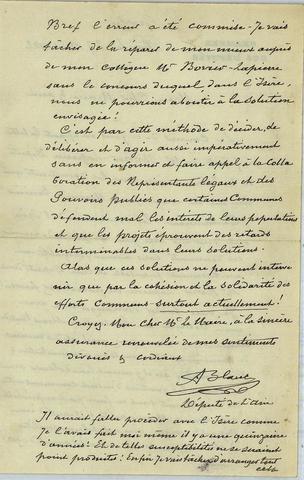 Bref l'erreur a été commise - Je vais
tâcher de la réparer de mon mieux auprès
de mon Collègue Mr Bovier-Lapierre
sans le concours duquel, dans l'Isère,
nous ne pourrions aboutir à la solution
envisagée!
C'est par cette méthode de décider, de
délibérer et d'agir aussi impérativement
sans en informer et faire appel à la Colla-
boration des Représentants légaux et des
Pouvoirs Publics que certaines Communes
défendent mal les intérets de leurs populations
et que les projets éprouvent des retards
interminables dans leurs solutions.
Alors que ces solutions ne peuvent interve-
nir que par la cohésion et la solidarité des
efforts Communs surtout actuellement!
Croyez, Mon Cher Mr le Maire, à la sincère
assurance renouvelée de mes sentiments
dévoués & cordiaux
A Blanc
Député de l'Ain
Il aurait fallu procéder avec l'Isère comme
Je l'avais fait moi même il y a une quinzaine
d'années! Et de telles susceptibilités ne se seraient
point produites! Enfin Je vais tâcher d'arranger tout
cela